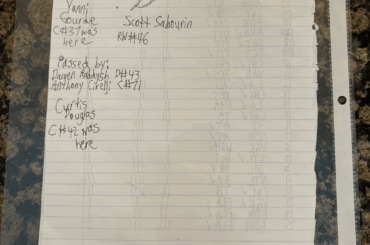 Yanni
Gourde
C#37 was
here
Scott Sabourin
RW#46
Passed by;
Darren Raddysh D#43
Anthony Cirelli C#71
Curtis
Douglas
C#42 was
here